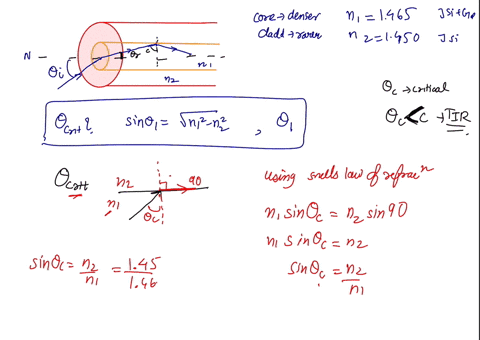 core → denser n₁ = 1.465 Jsi+Ge
cladd → rarer n₂ = 1.450 Jsi
N
θi
θr
c
n₁
n₂
θc → critical
θc < C → TIR
θcrit? sinθ₁ = √n₁²-n₂² , θ₁
θcrit
n₂
90
n₁
θc
using snells law of refracⁿ
n₁ sinθc = n₂ sin90
n₁ sinθc = n₂
sinθc = n₂/n₁
sinθc = n₂/n₁ = 1.45/1.46